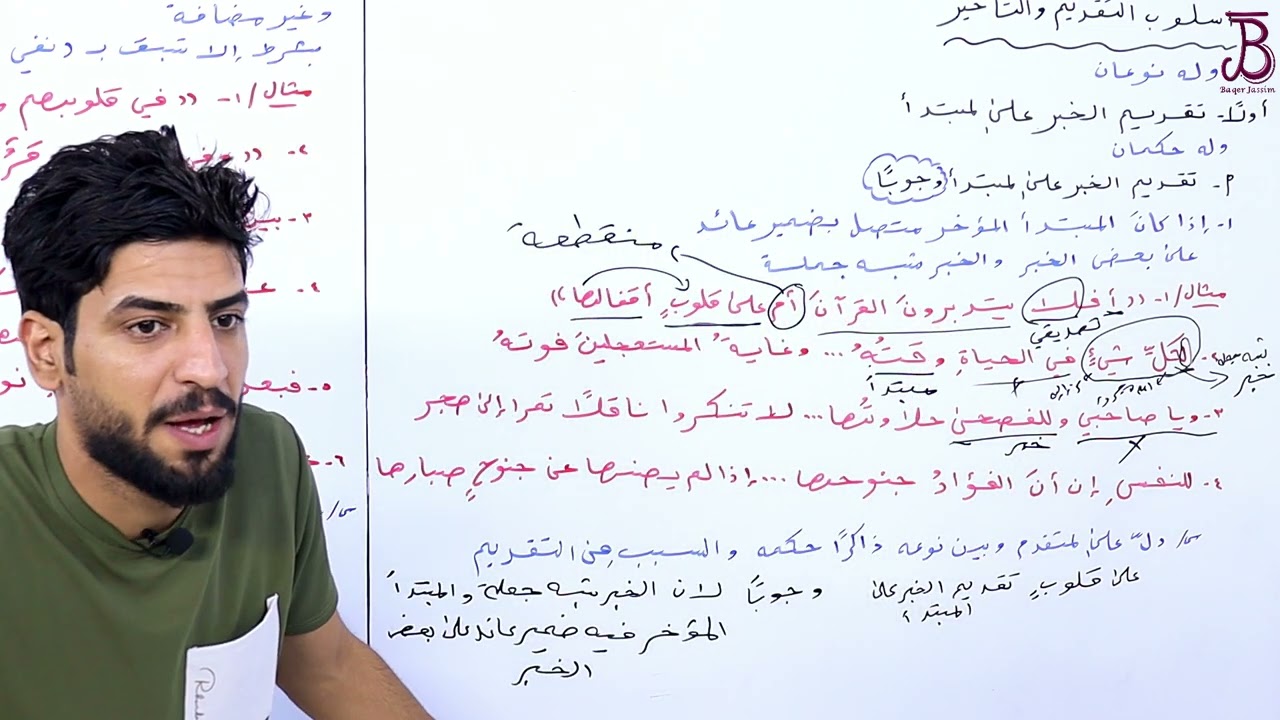 أسلوب التقديم والتأخير
Baqer Jassim
وله نوعان
أولًا- تقديم الخبر على المبتدأ
وله حكمان
م- تقديم الخبر على المبتدأ وجوبًا
١- إذا كانَ المبتدأ المؤخر متصل بضمير عائد
على بعض الخبر والخبر شبه جملة
منقطعة
مثال/١- ((أفلا يتدبرونَ القرآنَ أم على قلوبٍ أقفالها))
تصديقي
٢- لكلِّ شيءٍ في الحياةِ وقتُهُ ... وغايةُ المستعجلينَ فوتهُ
شبه جملة
خبر
مبتدأ
٣- ويا صاحبي وللفصحى حلاوتُها ... لا تنكروا ناقلًا تمرا إلى هجر
خبر
٤- للنفسِ إن أنَ الفؤادُ جنوحها ... إذا لم يصنها عن جنوحٍ صبارها
س/ دلّ على المتقدم وبين نوعه ذاكرًا حكمه والسبب في التقديم
على قلوبٍ تقديم الخبر على المبتدأ وجوبًا لان الخبر شبه جملة والمبتدأ
المؤخر فيه ضمير عائد على بعض
الخبر
وغير مضافة
بشرط إلا تسبق بـ (نفي
مثال/١- ((في قلوبهم
٢- ((
٣-
٤-
٥-
٦-
س/